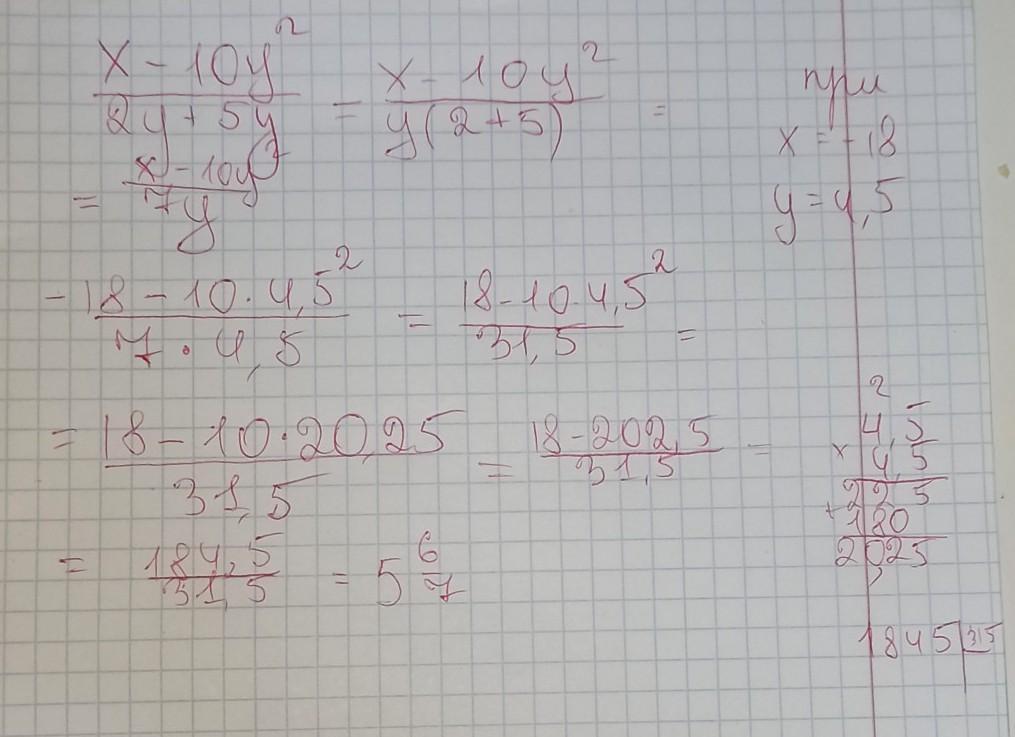 x - 10y² / 2y + 5y = x - 10y² / y(2 + 5) =
при
x = -18
y = 4,5
= x - 10y² / 7y
-18 - 10 · 4,5² / 7 · 4,5 = 18 - 10 · 4,5² / 31,5 =
= 18 - 10 · 20,25 / 31,5 = 18 - 202,5 / 31,5 =
= 184,5 / 31,5 = 5 6/7
2
4,5
× 4,5
225
+ 180
20,25
1845 | 315